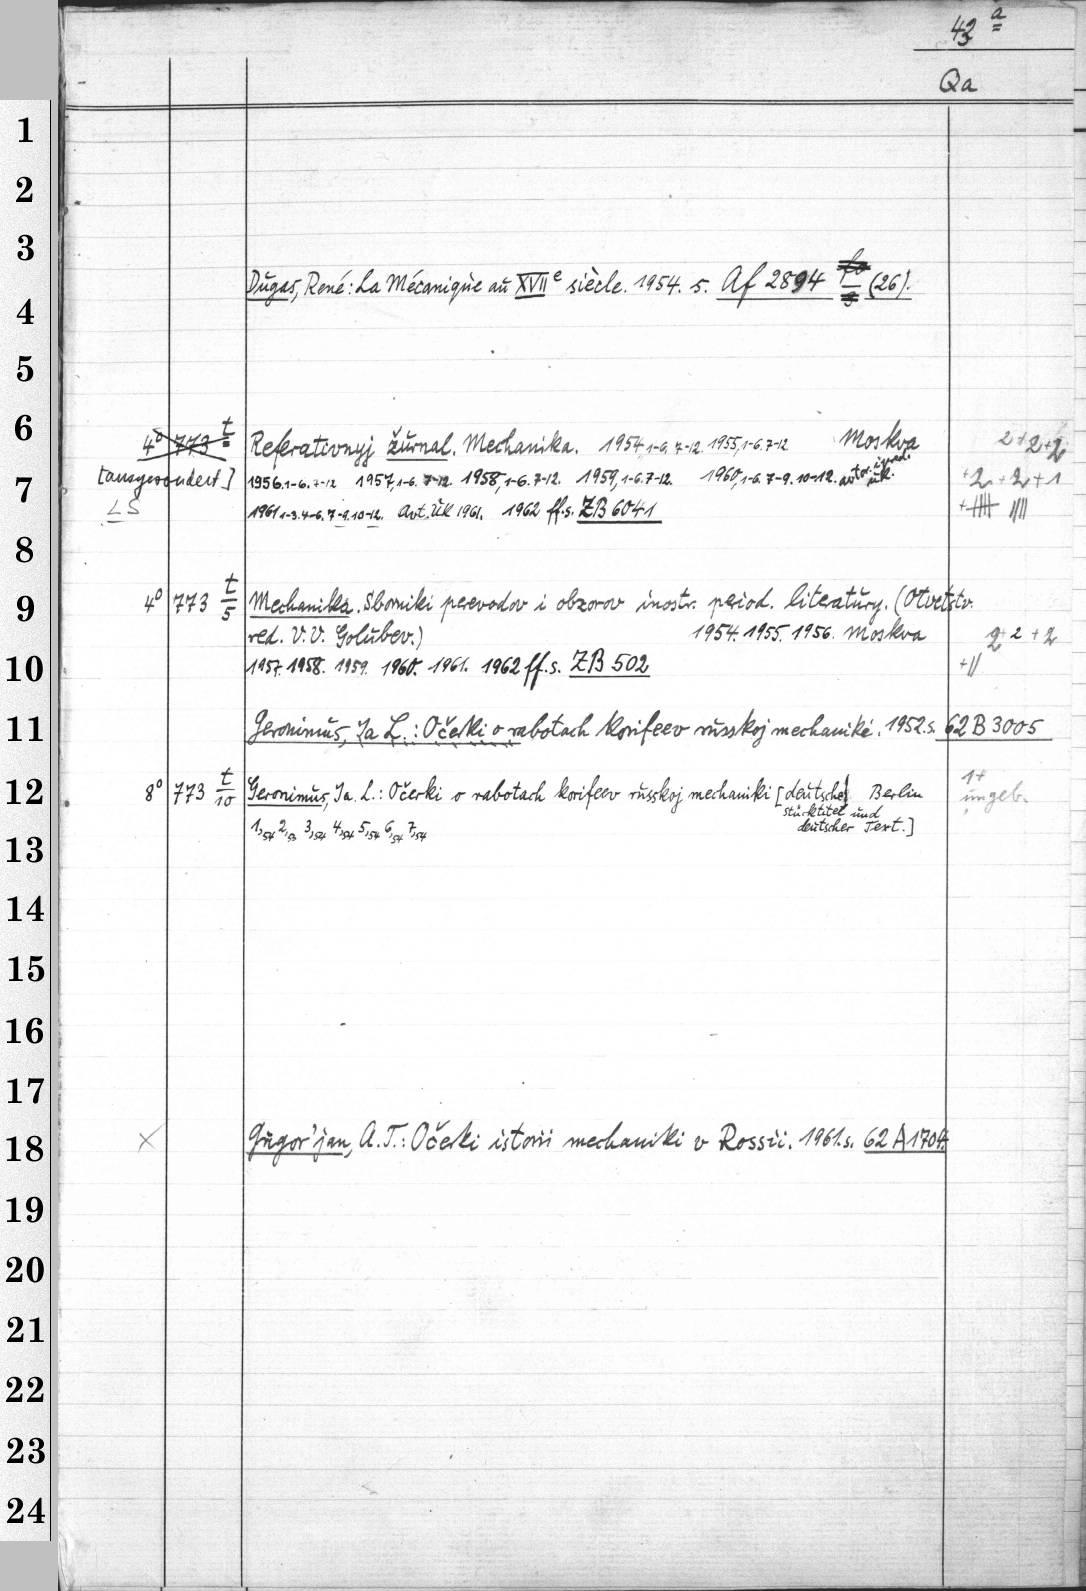 42 a
Qa
1
2
3
Dugas, René: La Mécanique au XVII e siècle. 1954. s. Af 2894 (26).
4
5
6
4° 773 t Referativnyj žurnal. Mechanika. 1954,1-6, 7-12. 1955,1-6.7-12 Moskva 2+2+2
7
[ausgesondert] 1956.1-6.7-12 1957,1-6. 7-12. 1958,1-6.7-12. 1959,1-6.7-12. 1960,1-6.7-9.10-12. +2+2+1
LS 1961 1-3.4-6.7-9.10-12. Avt. Uk 1961. 1962 ff.s. ZB 6041
8
9
4° 773 t/5 Mechanika. Sborniki perevodov i obzorov inostr. period. literatury. (Otvetstv.
red. V. V. Golubev.) 1954. 1955. 1956. Moskva 2+2+2
10
1957. 1958. 1959. 1960. 1961. 1962 ff. s. ZB 502 +||
11
Geronimus, Ja L.: Očerki o rabotach korifeev russkoj mechaniki. 1952.s. 62 B 3005
12
8° 773 t/10 Geronimus, Ja. L.: Očerki o rabotach korifeev russkoj mechaniki [deutscher Berlin 1+
ungeb.
stücktitel und
1,54 2,54 3,54 4,54 5,54 6,54 7,54 deutscher Text.]
13
14
15
16
17
18
× Grigor'jan, A. T.: Očerki istorii mechaniki v Rossii. 1961.s. 62 A 1704.
19
20
21
22
23
24